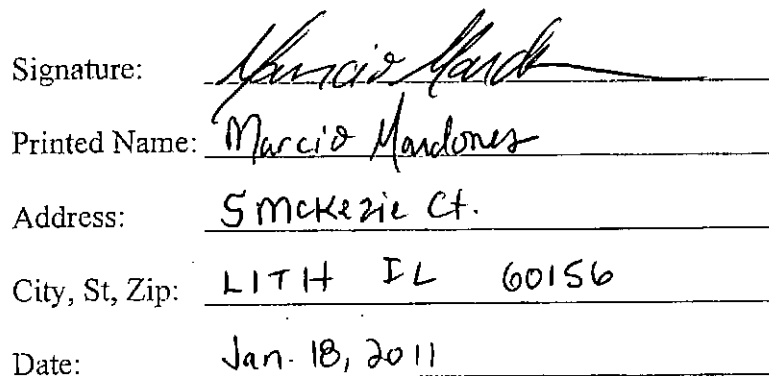 Signature: Marcio Mard
Printed Name: Marcio Mardones
Address: 5 McKezie Ct.
City, St, Zip: LITH IL 60156
Date: Jan. 18, 2011